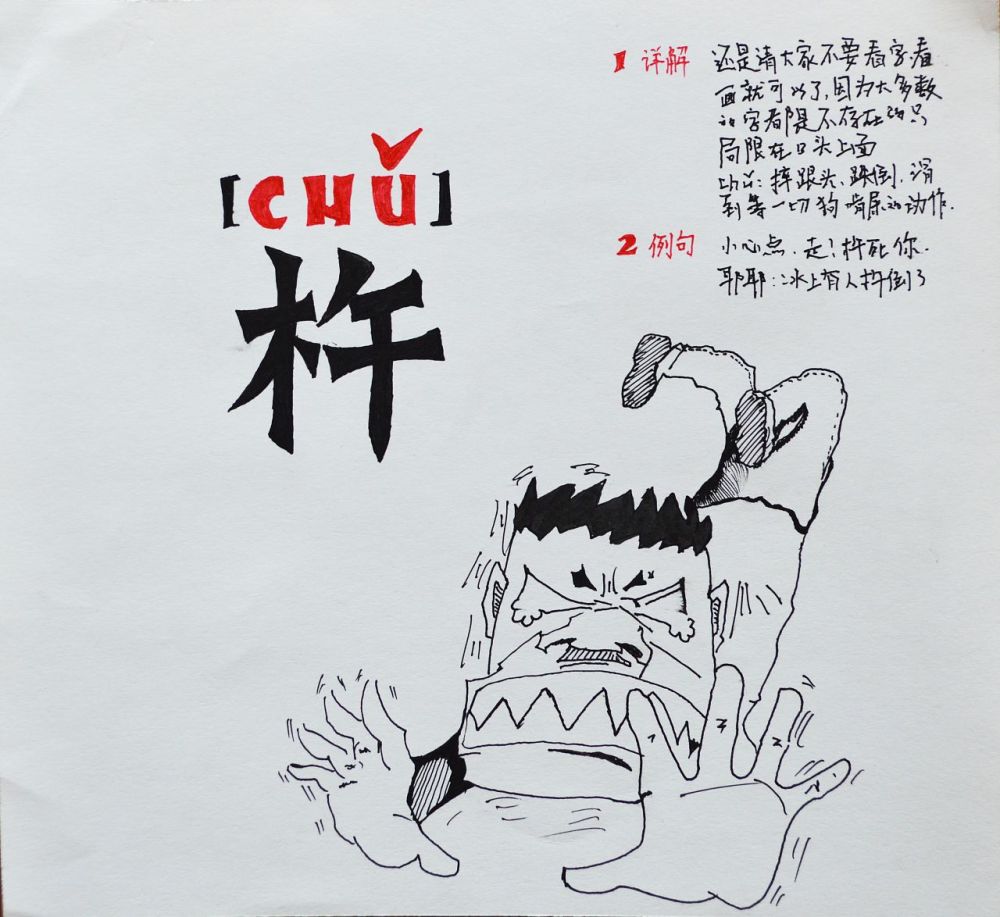 [CHǓ]
杵
1 详解 还是请大家不要看字看
画就可以了,因为大多数
的字都是不存在的只
局限在口头上面
chǔ: 摔跟头、跌倒、滑
到等一切狗啃屎的动作.
2 例句 小心点.走!杵死你.
耶耶:冰上有人杵倒了